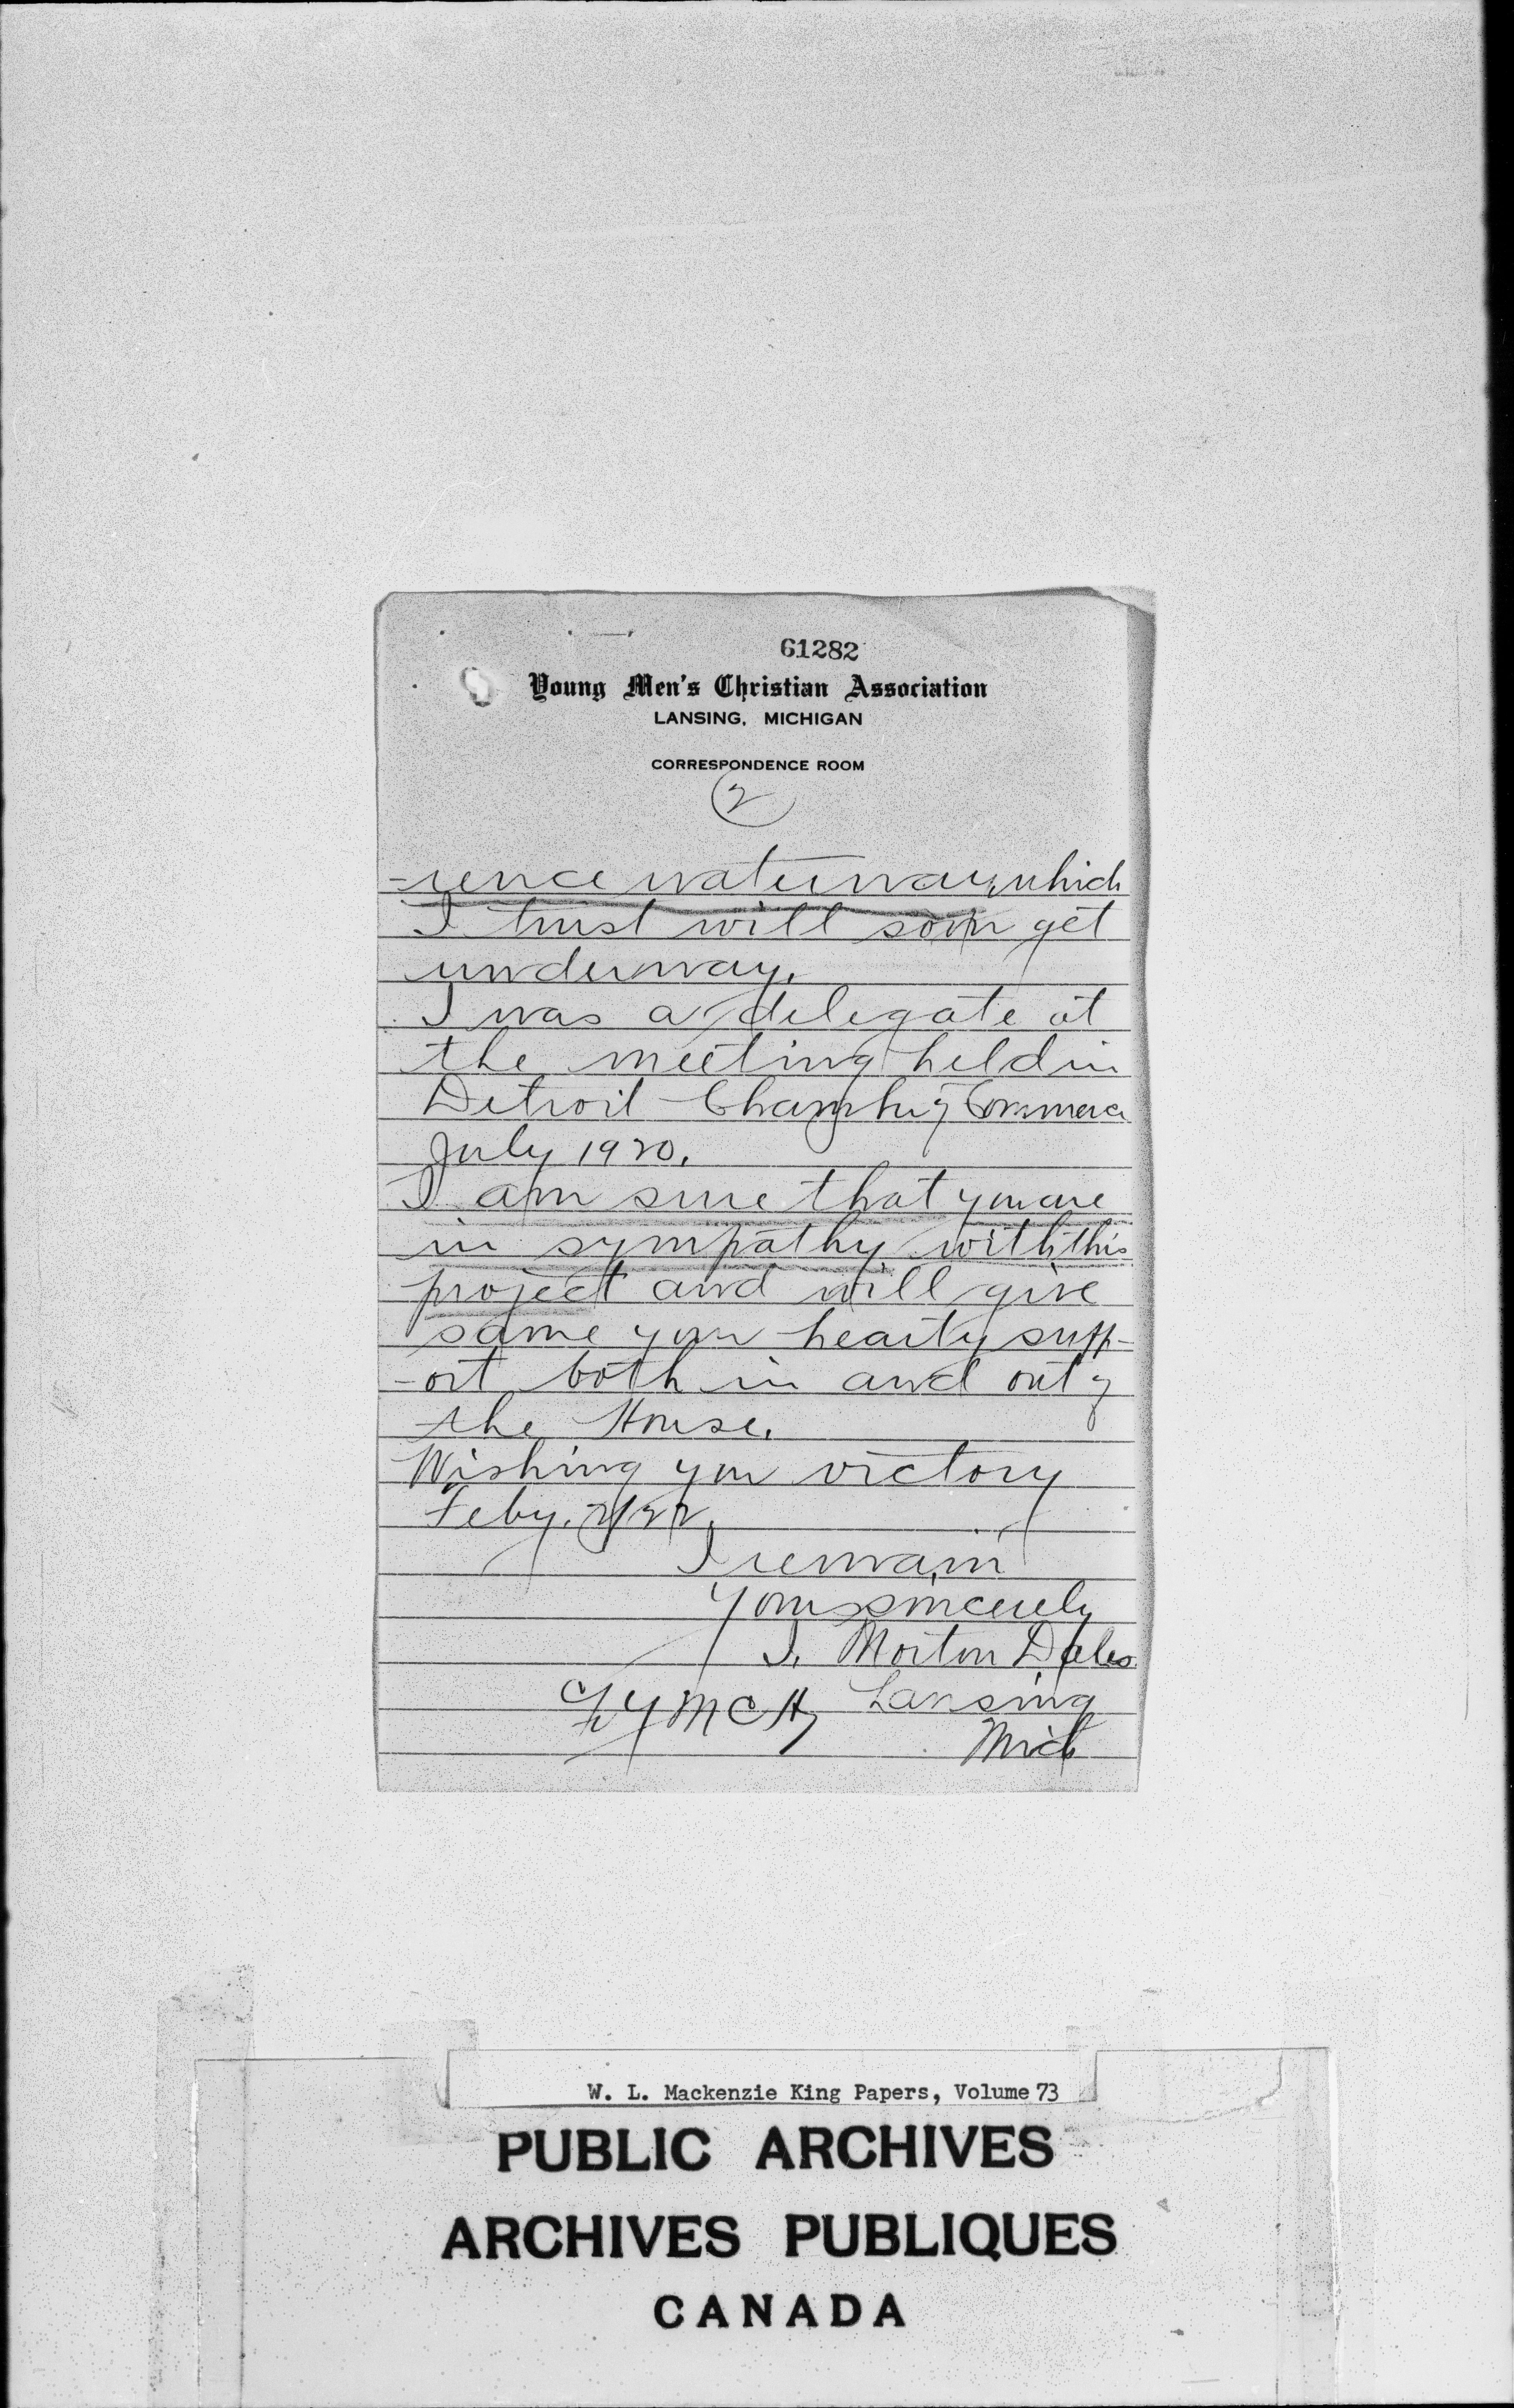 61282
Young Men's Christian Association
LANSING, MICHIGAN
CORRESPONDENCE ROOM
2
-rence waterway, which
I trust will soon get
underway.
I was a delegate at
the meeting held in
Detroit Chamber of Commerce
July 1920.
I am sure that you are
in sympathy with this
project and will give
same your hearty supp-
-ort both in and out of
the House.
Wishing you victory
Feby. 2/22.
I remain
Yours sincerely
J. Morton Dales
YMCA, Lansing
Mich
W. L. Mackenzie King Papers, Volume 73
PUBLIC ARCHIVES
ARCHIVES PUBLIQUES
CANADA